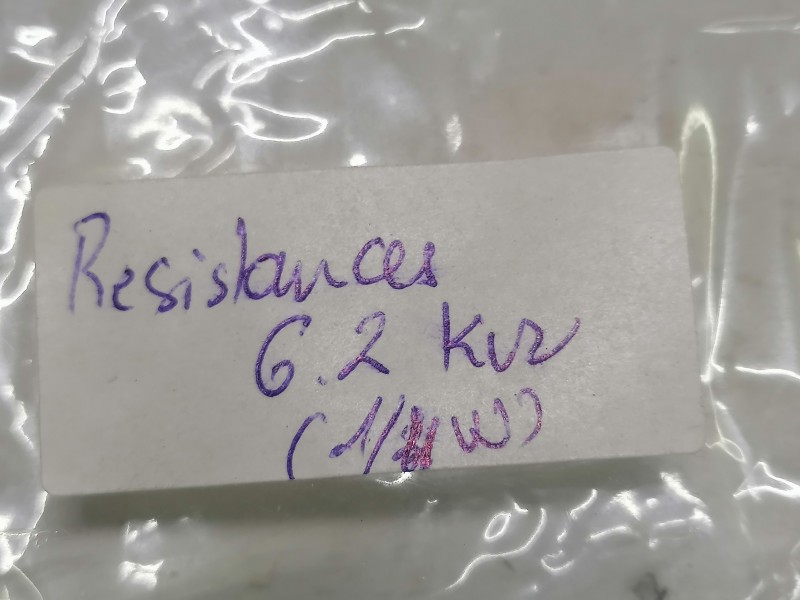 Resistances
6.2 kΩ
(1/4W)